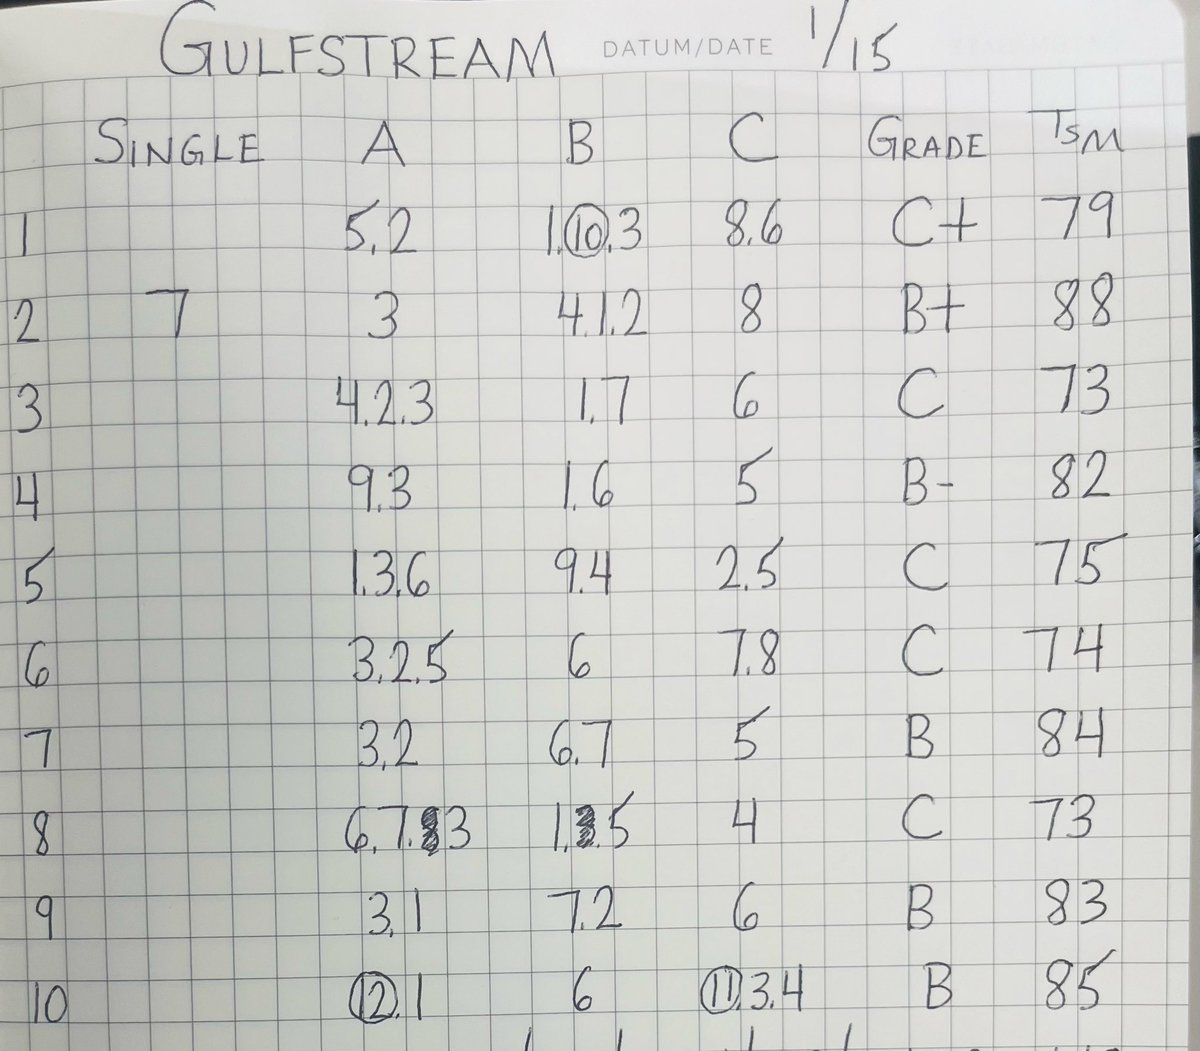 GULFSTREAM DATUM/DATE 1/15
SINGLE A B C GRADE TSM
1 5,2 1.10.3 8.6 C+ 79
2 7 3 4.1.2 8 B+ 88
3 4.2.3 1.7 6 C 73
4 9.3 1.6 5 B- 82
5 1.3,6 9.4 2.5 C 75
6 3,2.5 6 7.8 C 74
7 3,2 6.7 5 B 84
8 6,7.3 1.5 4 C 73
9 3,1 7.2 6 B 83
10 12.1 6 11.3.4 B 85